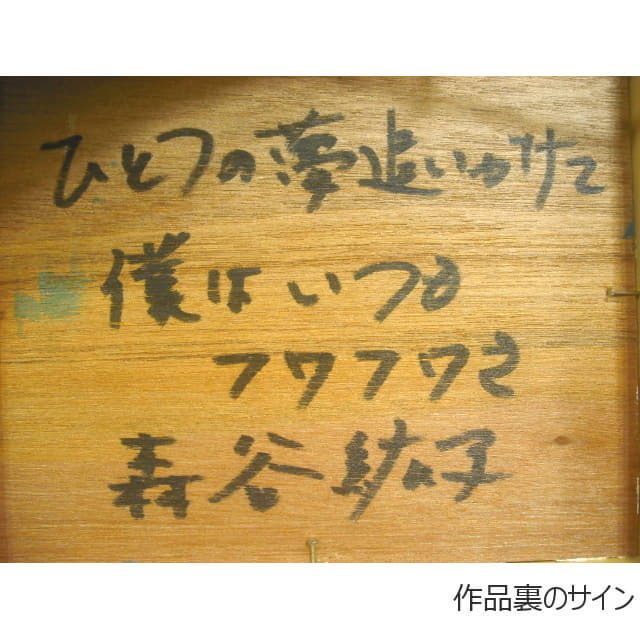 ひとつの夢追いかけて
僕はいつも
フワフワさ
森谷紘子
作品裏のサイン